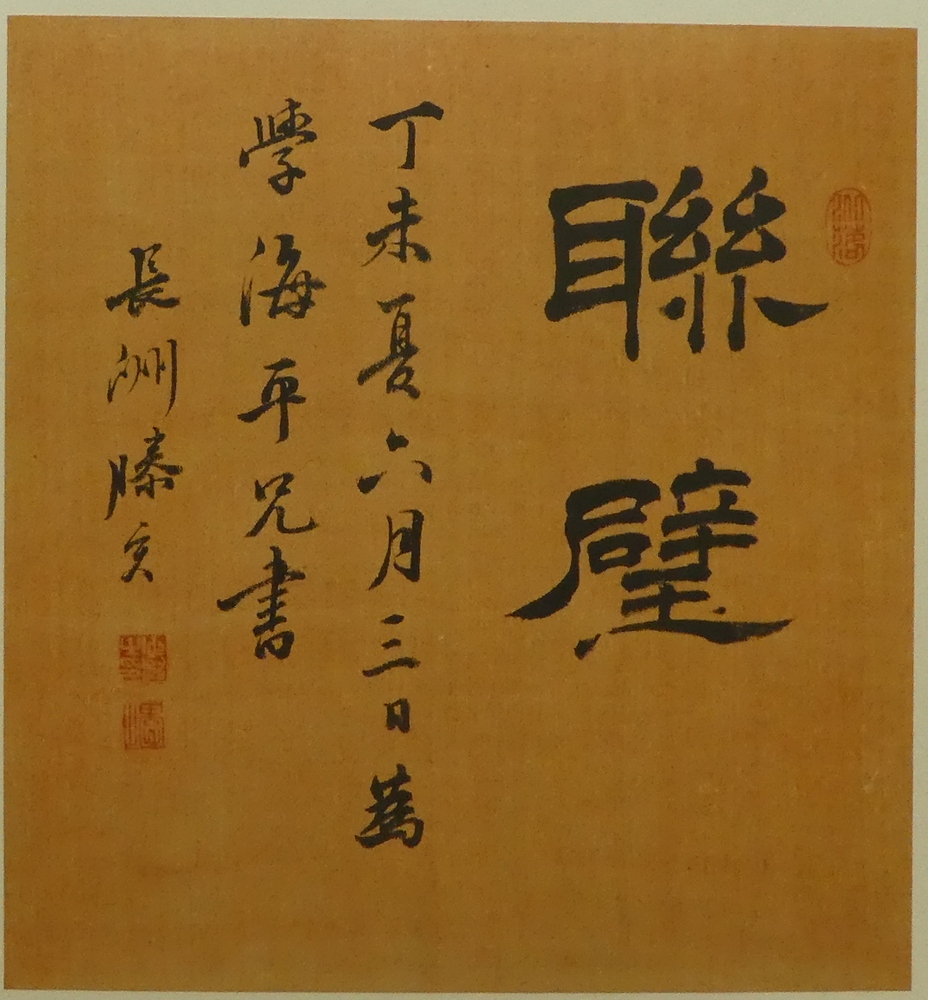 聯璧
丁未夏六月三日為
學海平兄書
長洲滕亥